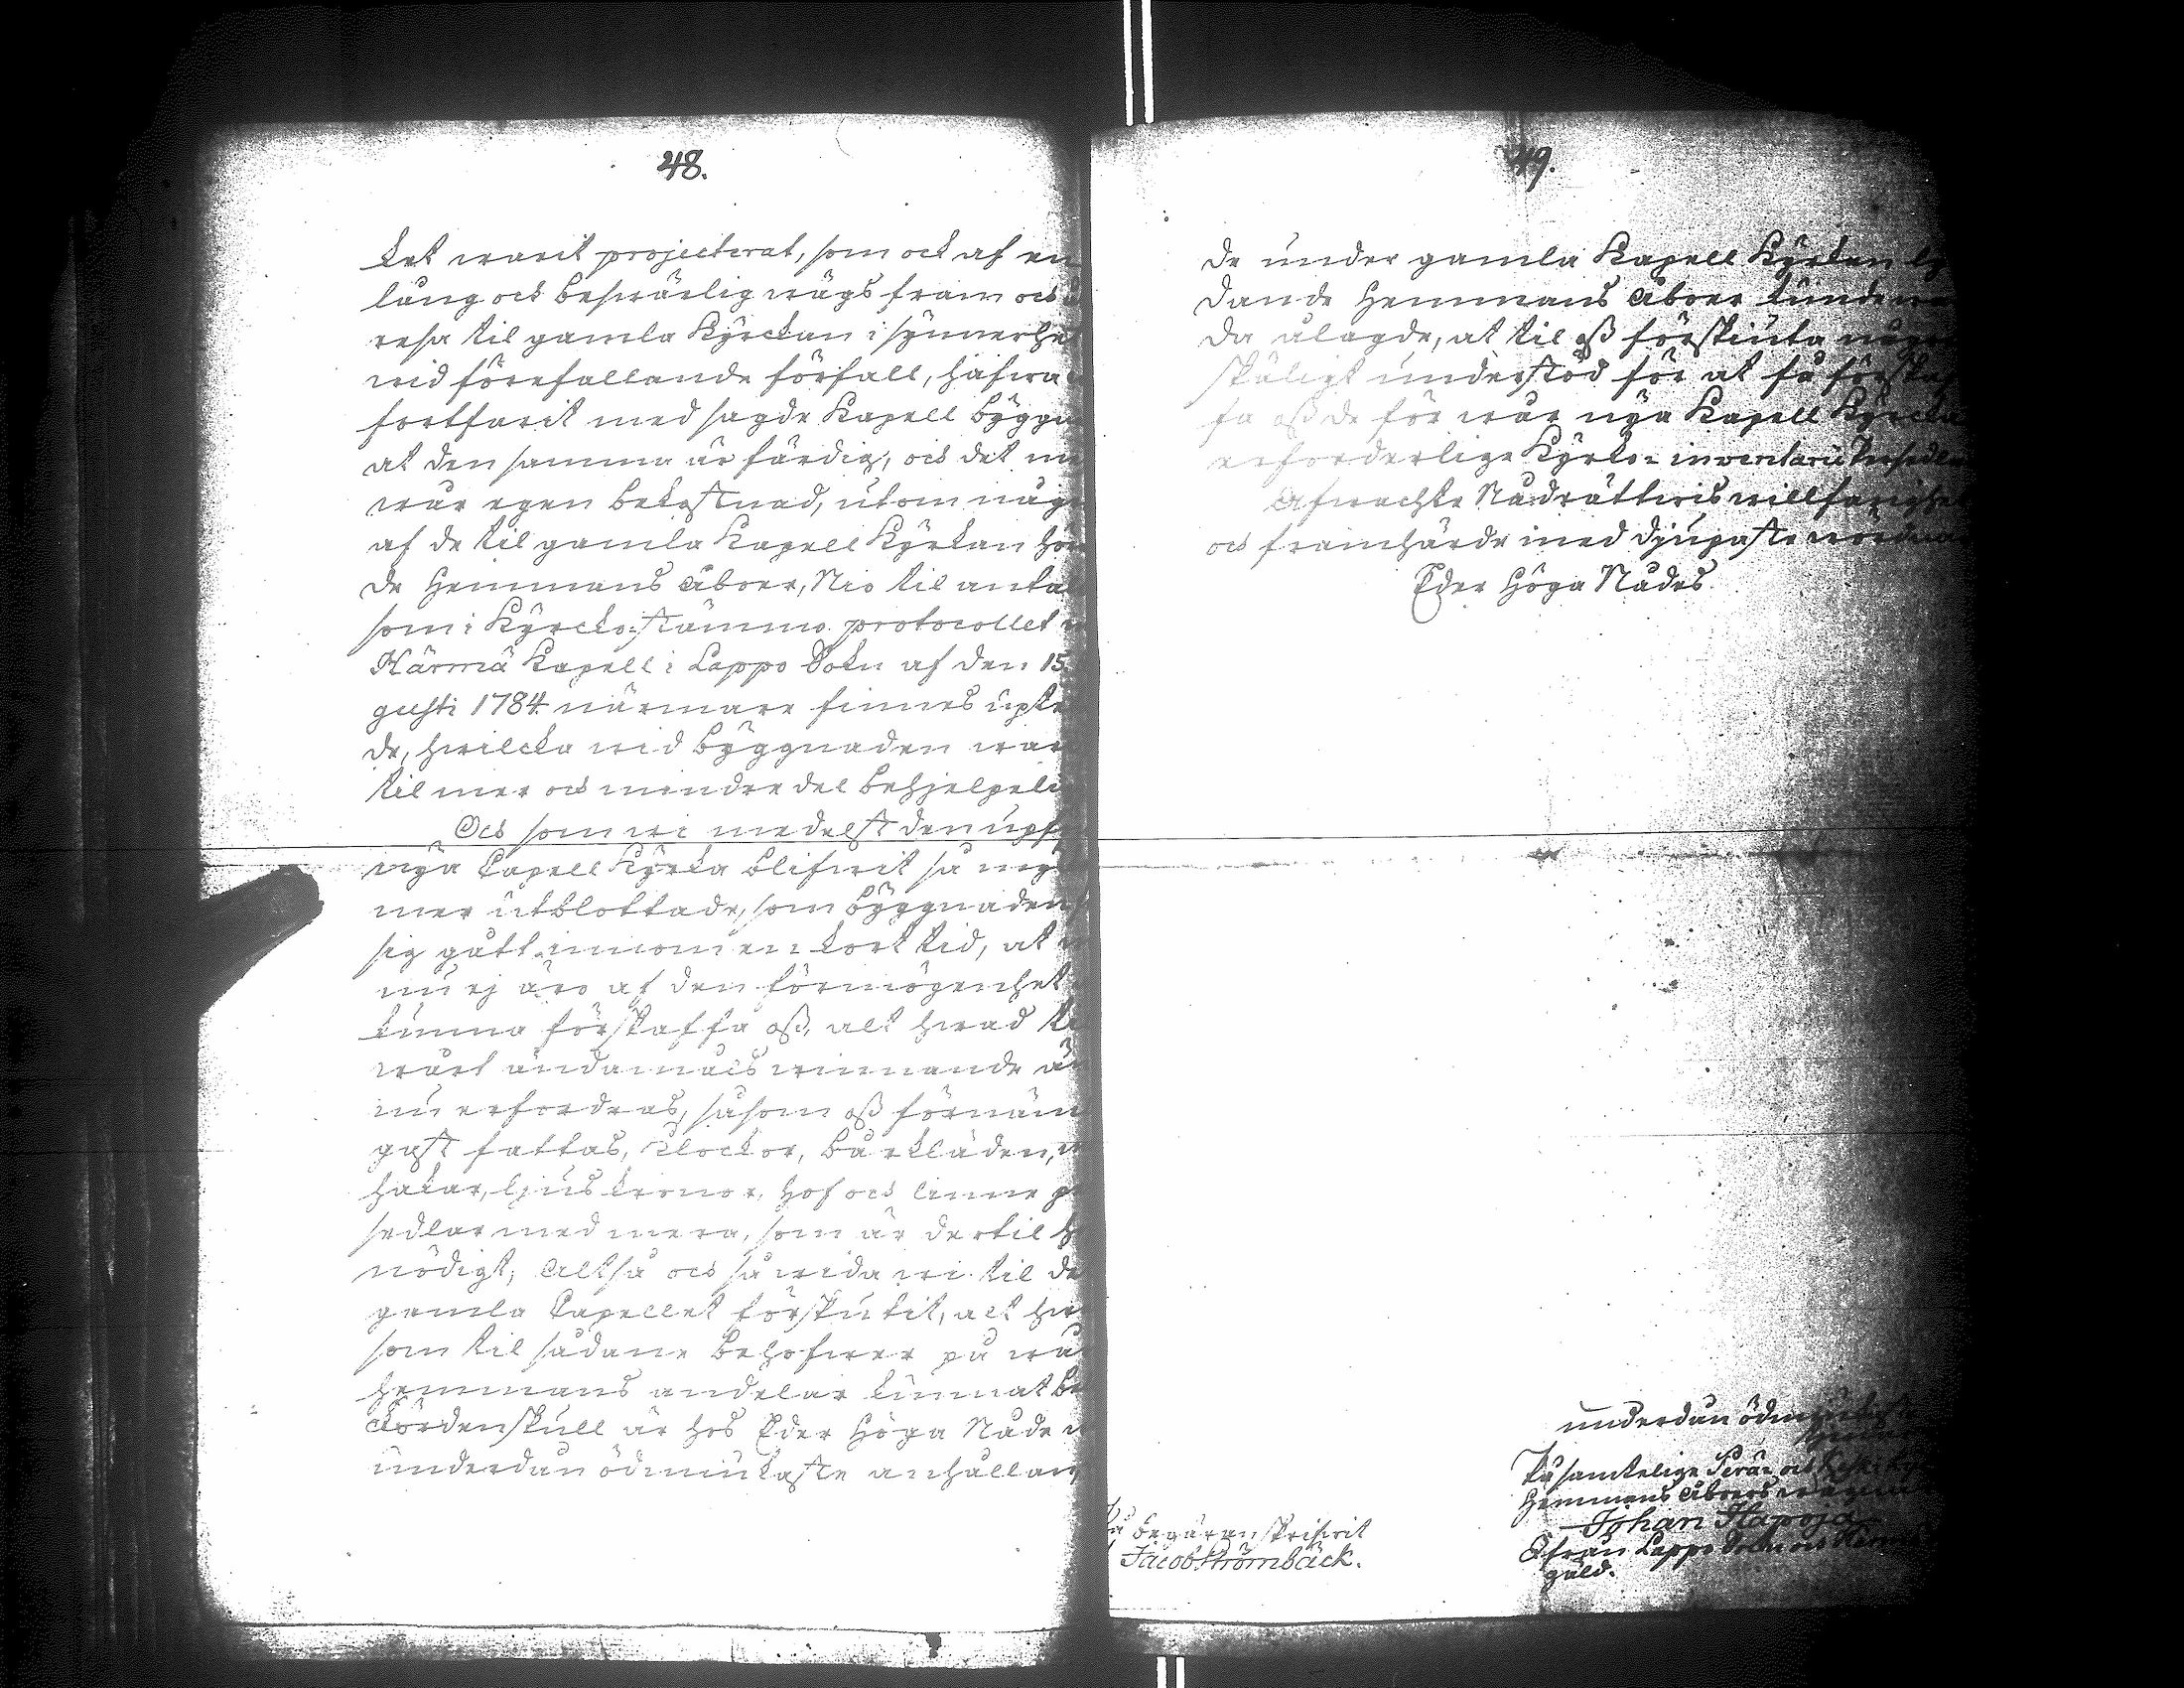 48.
ket warit projecterat, som ock af en
lång och beswärlig wägs fram och
resa til gamla Kyrckan i synnerhet
wid förefallande förfall, hafwa
fortfarit med sagde Kapell bygg
at den samma är färdig, och det m
wår egen bekostnad, utom någ
af de til gamla Kapell Kyrkan hör
de Hemmans Åboer, Nio til anta
som i Kyrcko-stämmo protocollet
Härmä Kapell i Lappo Sokn af den 15
gusti 1784 närmare finnes upte
de, hwilcka wid byggnaden war
til mer och mindre del behjelpeli
Och som wi medelst den upf
nya Capell Kyrka blifwit så myc
mer utblottade, som byggnaden
sig gått innom en kort tid, at
nu ej äro af den förmögenhet
kunna förskaffa oss, alt hwad t
wårt ändamåls winnande än
nu erfordras, såsom oss förnäm
gast fattas, Clockor, bårkläden, m
hakar, ljuskronor, hof och linne p
sedlar med mera, som är dertil h
nödigt, Altså och så wida wi til de
gamla Capellet förskutit, alt hw
som til sådane behofwer på wå
hemmans andelar kunnat be
Fördenskull är hos Eder Höga Nåde
underdån ödmiukaste anhållan
49.
de under gamla Kapell Kyrkan ly
dande Hemmans Åboer kunde w
da ålagde, at til oss förskiuta någo
skäligt understöd för at få förskaf
fa oss de för wår nya Kapell Kyrcka
erforderlige Kyrko-inventarii Persedla
Afwachte Nådrättwis willfarighet
och framhärde med djupaste wördna
Eder Höga Nådes
underdån ödmiukaste
På samtelige Perä- och
Hemmans Åboers wägna
Johan Hapoja
från Lappo Sokn och Härmä
gäld.
På begäran skrifwit
Jacob Strömbäck.